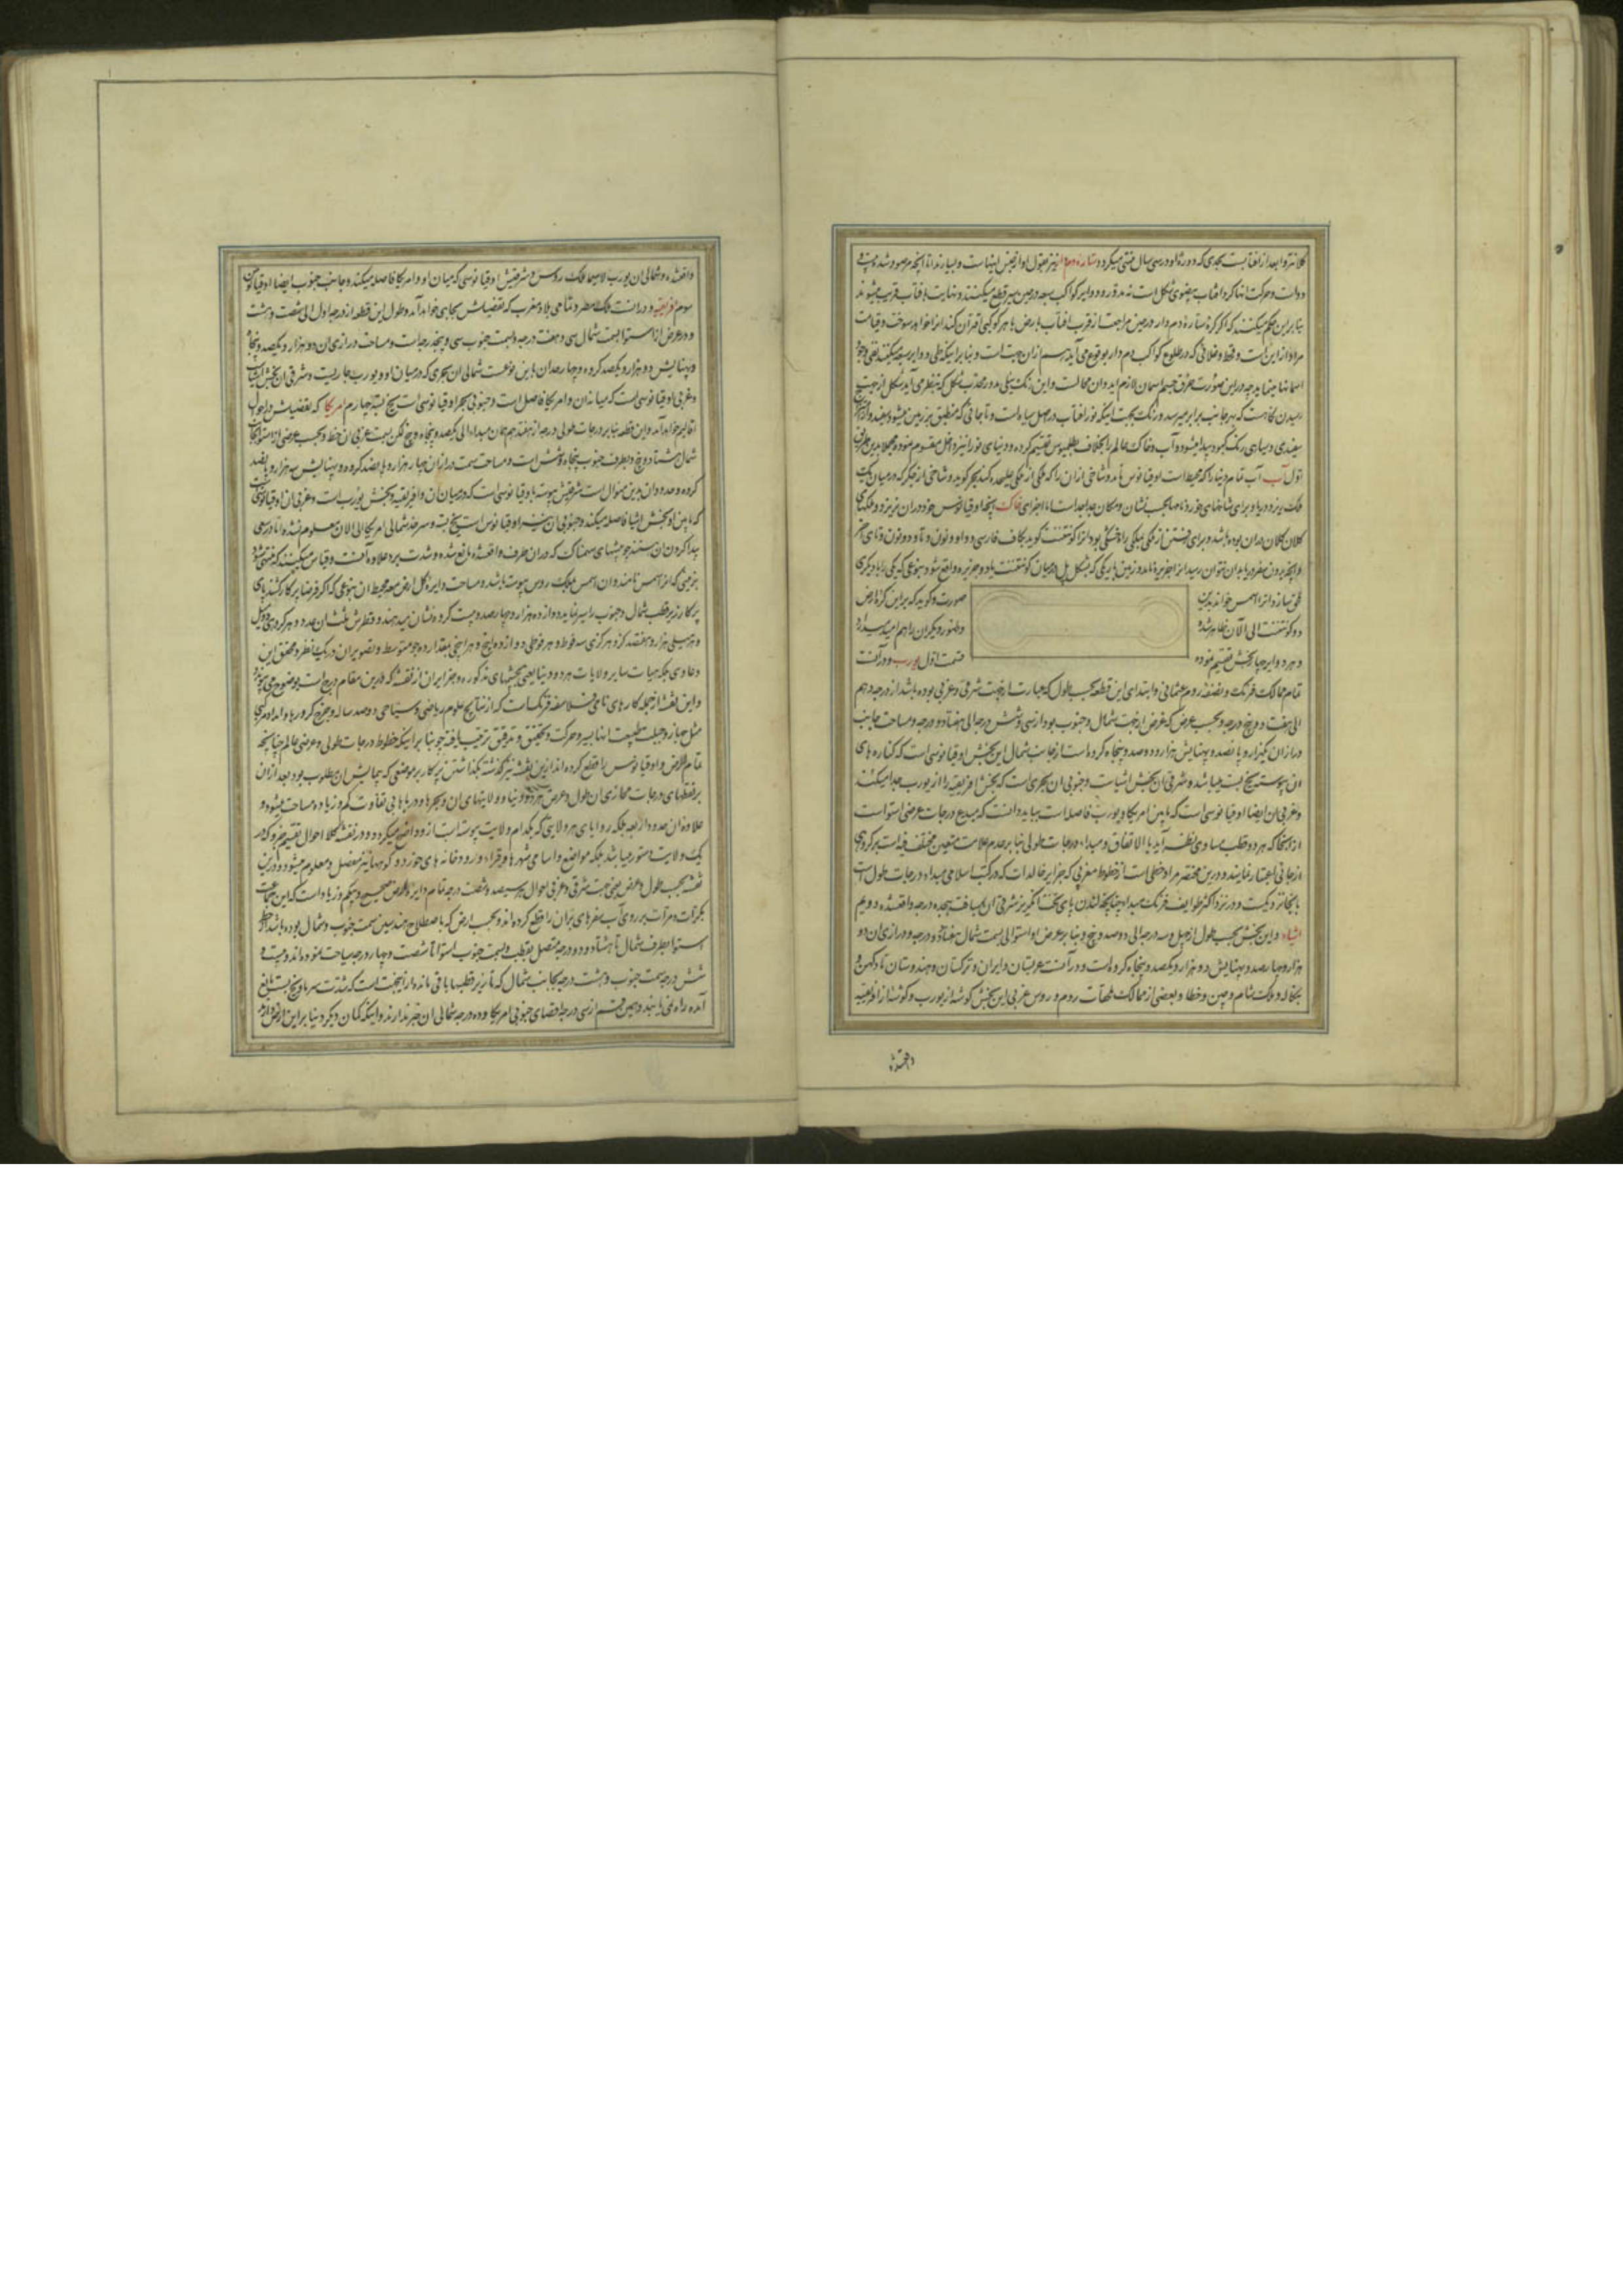 کلانتر و ابعد از افتاب است بحدی که دوره او در سی سال منتهی میگردد و ستاره دم دار نیز بقول او از جنس اینهاست و بسیارند اما انچه مرصود شده بیست و
دو است و حرکت انها کرد افتاب بیضوی شکل است نه مدور و دوایر کواکب سبعه در حین سیر قطع میکنند و نهایت بافتاب قریب میشوند
بنابراین حکم میکنند که اگر کره ستاره دم دار در حین مراجعت از قرب افتاب بارض یا هر کوکبی اقتران کند انرا خواهد سوخت و قیامت
مراد از این است و قحط و غلائی که در طلوع کواکب دم دار بوقوع می آید هم از ان جهت است و بنابر اینکه طی دوایر سبعه میکنند نفی وجود
اسمانها مینماید چه در این صورت خرق جسم اسمان لازم اید و ان محالست و این رنگ نیلی مدور محدب شکل که بنظر می آید شکل از جهت
رسیدن نگاهست که بهر جانب برابر میرسد و رنگ بجهت اینکه نور افتاب در اصل سیاه است و تا جائی که منطبق بر زمین میشود سفید و از
سفیدی و سیاهی رنگ کبود پیدا میشود و آب و خاک عالم را بخلاف بطلمیوس تقسیم کرده و دنیای نو را نیز داخل مقسوم نموده مجملا بدین طریق
اول آب آب تمام دنیا را که محیط است اوقیانوس نامد و شاخی از ان را که ملکی از ملکی علیحده کند بحر گوید و شاخی از بحر که در میان یک
ملک ریزد دریا و برای شاخهای خورد نامها بحسب نشان و مکان جداجداست اما اجزای خاک اینجا اوقیانوس خود در ان نریزد و ملکهای
کلان کلان در ان بوده باشد و برای رفتن از ملکی بملکی راه خشکی بود انرا کونتننت گوید بکاف فارسی و واو و نون و تا و دو نون و تای اخر
و انچه بدون سفر دریا بدان نتوان رسید انرا جزیره نامد و زمین باریکی که بشکل پل در میان دو کونتننت یا دو جزیره واقع شود بنوعی که یکی را با دیگری
ملحق سازد انرا اسمس خواند بدین صورت و گوید که براین کره ارض
دو کونتننت الی الآن ظاهر شده و ظهور دیگران را هم امید میدارد
و هر دو را بر چهار بخش تقسیم نموده قسمت اول یورپ و در آنست
تمام ممالک فرنگ و نصف روم عثمانی و ابتدای این قطعه بحسب طول که عبارت از جهت شرقی و غربی بوده باشد از درجه دهم
الی هفتاد و پنج درجه و بحسب عرض که غرض از جهت شمال و جنوب بود از سی و شش درجه الی هفتاد و دو درجه و مساحت جانب
درازان یکهزار و پانصد و پهنایش هزار و دوصد و پنجاه کروه است از جانب شمال این بخش اوقیانوسی است که کناره های
ان پیوسته یخ بست میباشد و شرقی ان بخش اشیاست و جنوبی ان بحری است که بخش افریقیه را از یورپ جدا میکند
و غربی ان ایضا اوقیانوسی است که مابین امریکا و یورپ فاصله است بباید دانست که مبدع درجات عرضی استوا است
از انجا که هر دو قطب مساوی بنظر آید بالاتفاق و مبداء درجات طولی بنابر عدم علامت متعین مختلف فیه است هر گروهی
از جائی اعتبار نمایند و درین مختصر مراد خطی است از خطوط مغربی که جزایر خالدات که در کتب اسلامی مبداء درجات طول است
با انجا نزدیکست و در نزد اکثر طوایف فرنگ مبداء پنجاه لندن پای تخت انگریز شرقی ان بمسافت هیجده درجه واقعشده دویم
اشیاء و این بخش بحسب طول از چهل و سه درجه الی دوصد و پنج و بنا بر عرض او استوا الی سمت شمال هفتاد و درجه و درازی ان دو
هزار و چهارصد و پهنایش دو هزار و یکصد و پنجاه کروه است و در آنست عربستان و ایران و ترکستان و هندوستان تا دکهن و
بنگاله و ملک شام و چین و خطا و بعضی از ممالک محلات روم و روس غربی این بخش گوشه از یورپ و گوشه از افریقیه
واقعشده
واقعشده و شمالی ان یورپ لاسیما ملک روس و شرقیش اوقیانوسی که میان او و امریکا فاصله میکند و جانب جنوب ایضا اوقیانوس
سوم افریقیه و در انست ملک مصر و تمامی بلاد مغرب که تفصیلش بجاهی خواهد آمد و طول این قطعه از درجه اول الی شصت و هشت
و در عرض از استوا بسمت شمال سی و هفت درجه و بسمت جنوب سی و پنجدرجه است و مساحت درازی ان دو هزار و یکصد و پنجاه
و پهنایش دو هزار و یکصد کروه و چهار حد ان باین نوعست شمالی ان بحری که در میان او و یورپ جاریست و شرقی ان بخش اشیاست
و غربی اوقیانوسی است که میانه ان و امریکا فاصل است و جنوبی بحر اوقیانوسی است یخ بسته چهارم امریکا که تفصیلش در احوال
اقالیم خواهد آمد و این قطعه بنابر درجات طولی درجه از هفدهم همان مبداء الی یکصد و پنجاه و پنج لکن بسمت غربی ان خط و بحسب عرضی از استوا بجانب
شمال هشتاد و پنج و بطرف جنوب پنجاه و شش است و مساحت سمت دراز ان چهار هزار و پانصد کروه و پهنایش سه هزار و پانصد
کروه و حدود ان بدین منوال است شرقیش پیوسته با اوقیانوسی است که در میان ان و افریقیه و بخش یورپ است و غربی ان اوقیانوسی است
که مابین او و بخش اشیا فاصله میکند و جنوبی ان نیز اوقیانوس است یخ بسته و سرحد شمالی امریکا الی الان معلوم نشده اما در سعی
پیدا کردن ان هستند چو چشمهای سهمناک که در ان طرف واقعشده مانع شده و شدت برد علاوه آنست و قیاس میکنند که منتهی شود
بزمینی که انرا اسمس نامند و ان اسمس بملک روس پیوسته باشد و مساحت دایره کل ارض معه محیط ان بنوعی که اگر فرضا پرکار کشند پای
پرکار زیر قطب شمال و جنوب را سیر نماید دوازده هزار و چهارصد و بیست کروه نشان میدهند و قطرش ثلث ان عدد و هر کروهی دو میل
و هر میلی هزار و هفتصد گز و هر گزی سه فوط و هر فوطی دوازده اینچ و هر اینچی بمقدار ده جو متوسط و تصویر ان در یک نظر و محقق این
دعاوی جمله هیات سایر ولایات هر دو دنیا یعنی بخشهای مذکوره و جزایر ان از نقشه که درین مقام درج است بوضوح می پیوندد
و این نقشه از جمله کارهای نامی فلاسفه فرنگ است که از نتایج علوم ریاضی و سیاحی دوصد ساله و خرج کرورها و امداد مرکبها
مثل جهاز و جبلت طبیعت اینها بسیر و حرکت و تحقیق و تدقیق ترتیب یافته چو بنابر اینکه خطوط درجات طولی و عرضی عالم چنانچه
تمام الارض و اوقیانوس را قطع کرده اند ازین نقشه نیز گذشته بگذاشتن پرکار بر موضعی که پیمایش ان مطلوب بود بعد از ان
بر نقطهای درجات محاذی ان طول و عرض هر دو دنیا و ولایتهای ان و بحرها و دریاها بی تفاوت کم و زیاده مساحت میشود و
علاوه ان حدود اربعه بلکه روایای هر ولایتی که بکدام ولایت پیوسته است از و واضح میگردد و در نقشه کلا احوال تقسیم جزو که در
یک ولایت مستور میباشد بلکه مواضع و اسامی شهرها و قراء و رودخانه های خورد و کوهها نیز مفصل و معلوم میشود و درین
نقشه بحسب طول و عرض یعنی جهت شرقی و غربی احوال سیصد و شصت درجه تمام دایره الارض صحیح و بی کم و زیاد است که این جماعت
بکرات و مرات بر روی آب سفرهای بران را قطع کرده اند و بحسب ارض که باصطلاح مهندسین سمت جنوب و شمال بوده باشد از خط
استوا بطرف شمال تا هشتاد و دو درجه متصل بقطب و بسمت جنوب استوا تا شصت و چهار درجه سیاحت نموده اند و بیست و
شش درجه سمت جنوب و هشت درجه بجانب شمال که تا زیر قطبها باقی مانده از اینجهت است که شدت سرما و یخ بست مانع
آمده راه نمی یابند و همین قسم از سی درجه اقصای جنوبی امریکا و ده درجه شمالی ان خبر ندارند و اینکه گمان دیگر دنیا بر این از